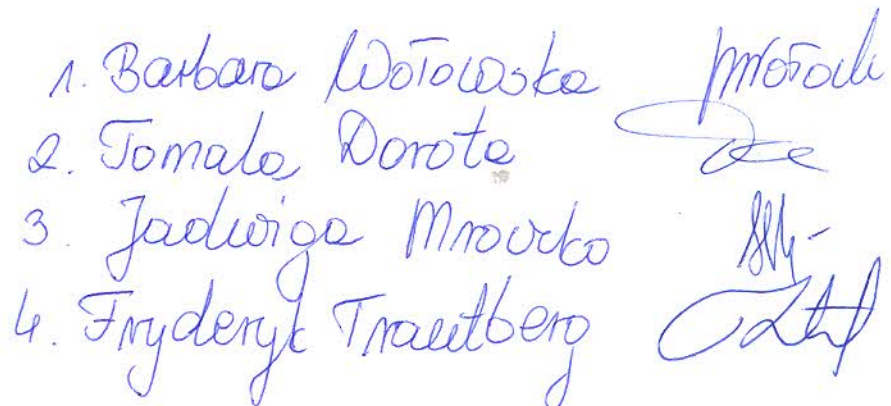 1. Barbara Wołowska
2. Tomala Dorota
3. Jadwiga Mrowcko
4. Fryderyk Trautberg